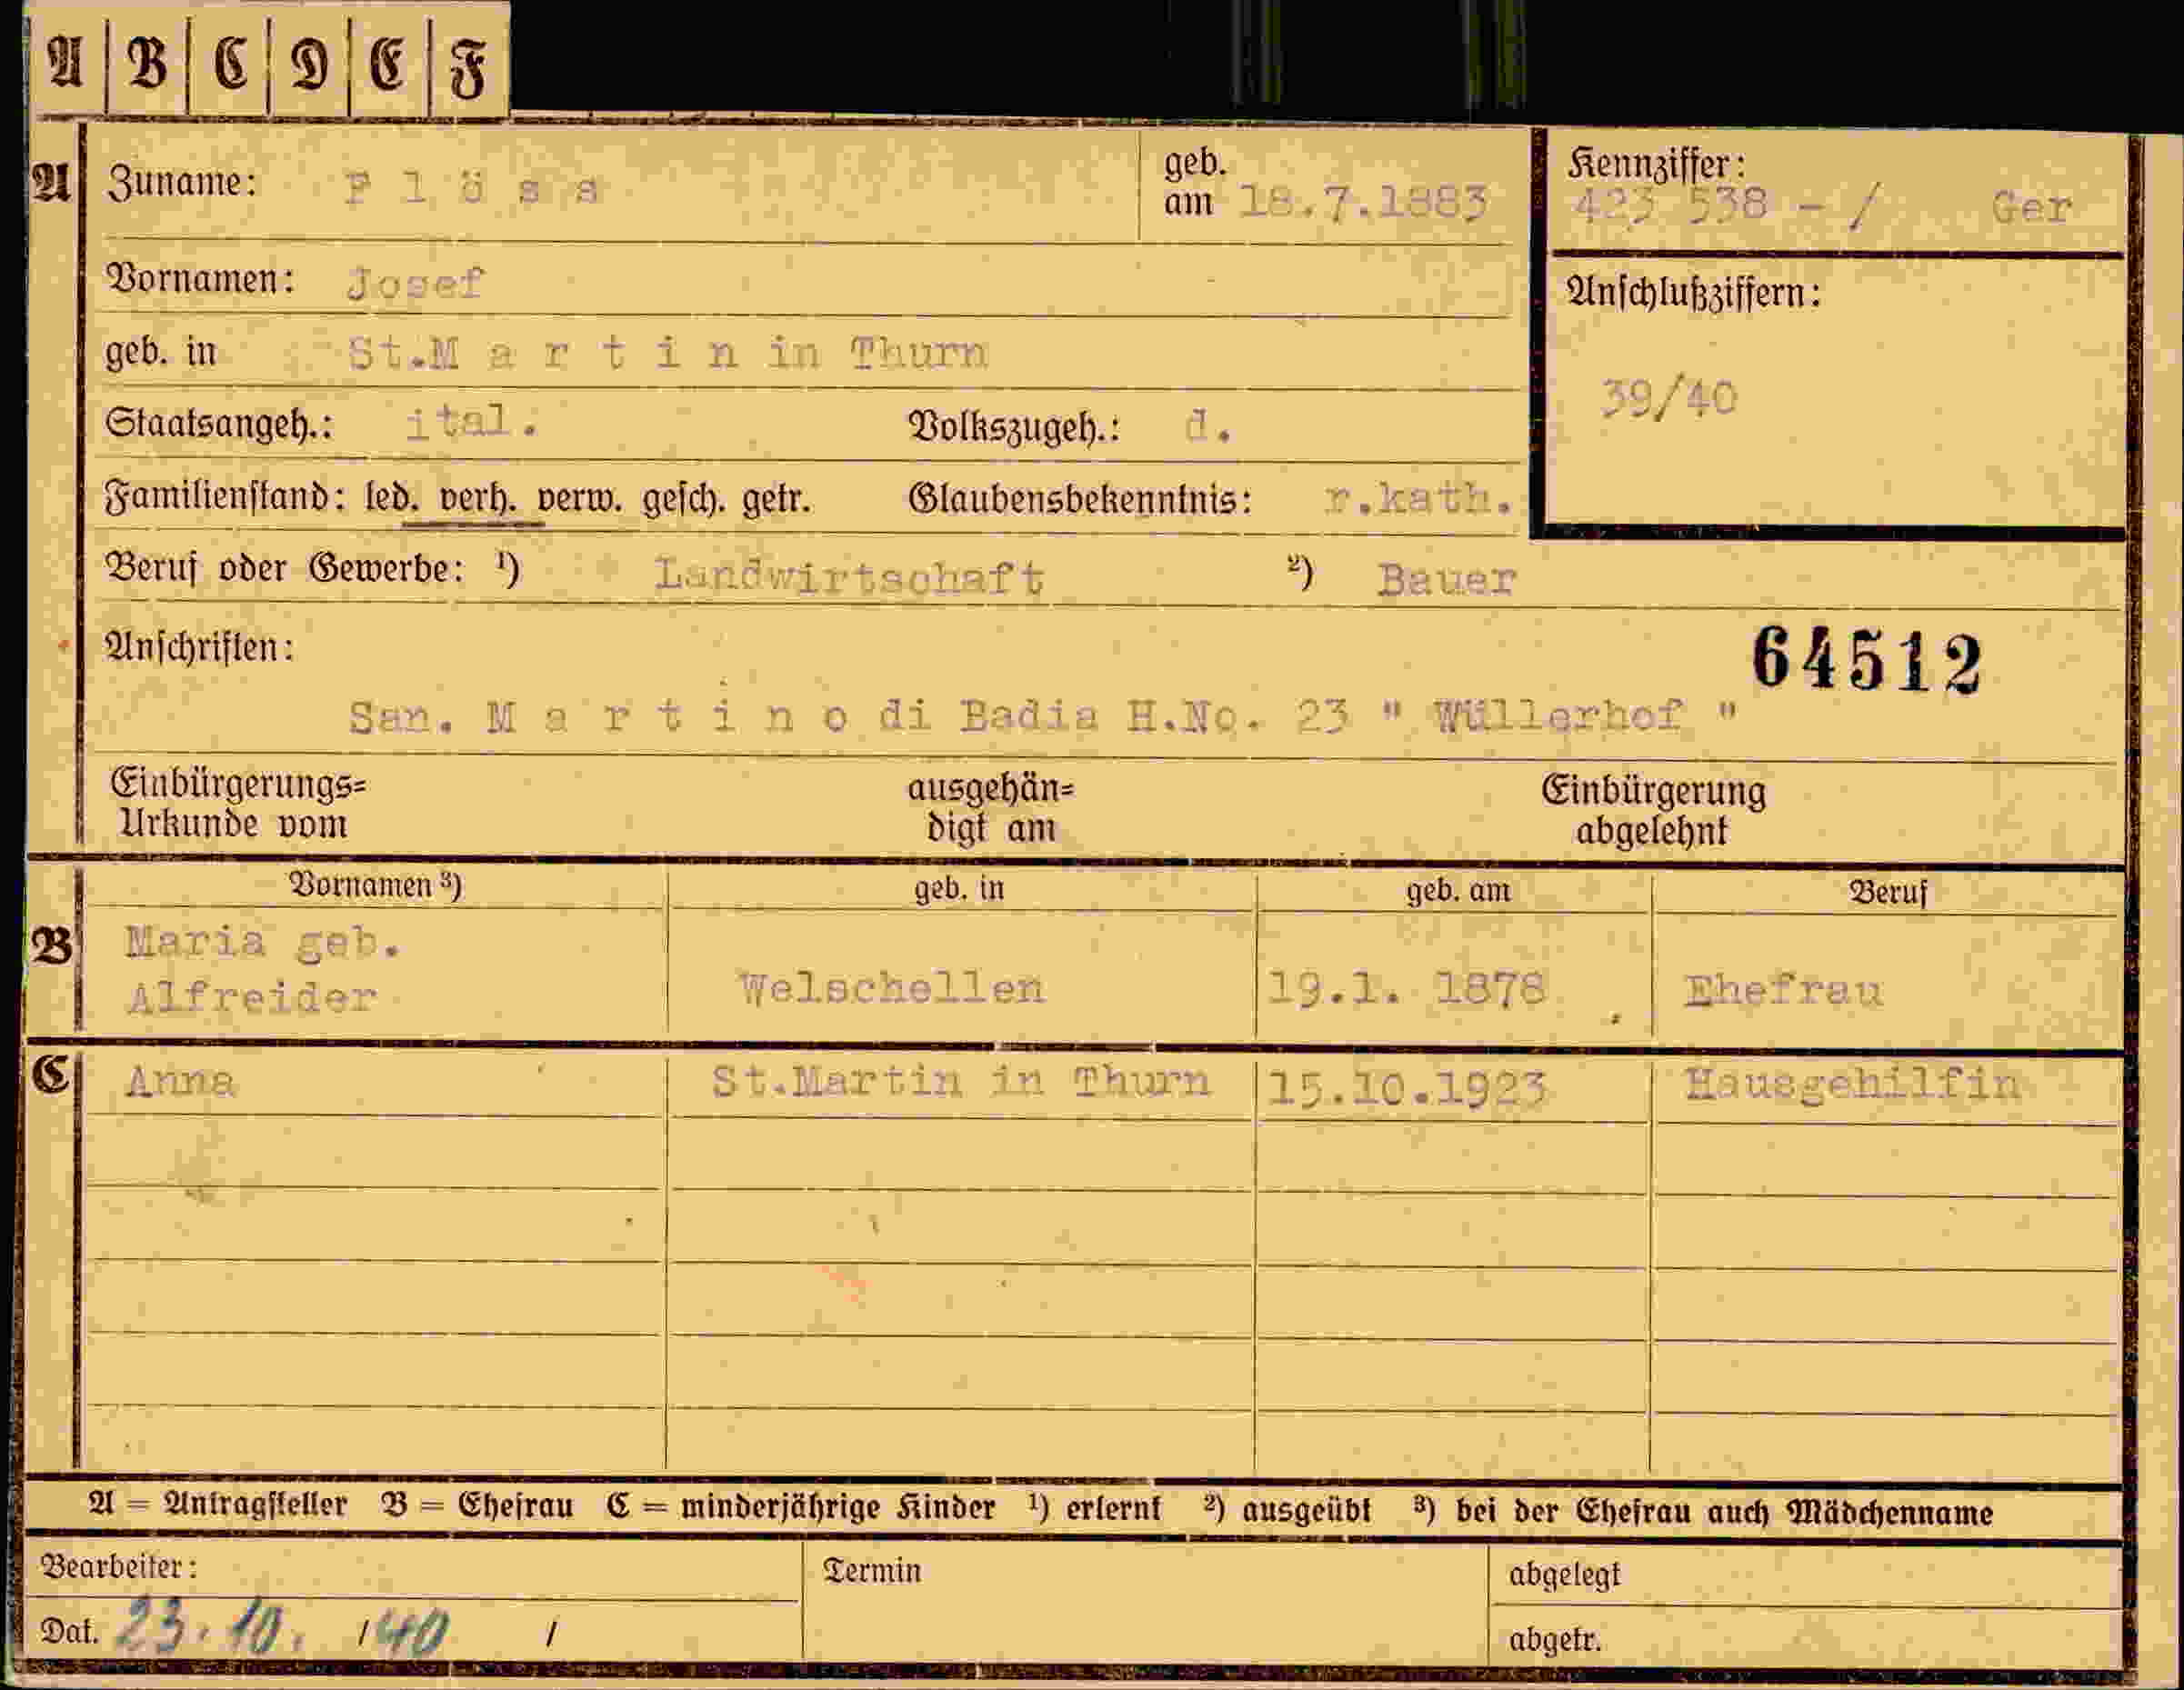 A B C D E F
A Zuname: P l ö s s geb. am 18.7.1883 Kennziffer: 423 538 - / Ger
Vornamen: Josef Anschlußziffern:
geb. in St.M a r t i n in Thurn
39/40
Staatsangeh.: ital. Volkszugeh.: d.
Familienstand: led. verh. verw. gesch. getr. Glaubensbekenntnis: r.kath.
Beruf oder Gewerbe: ¹) Landwirtschaft ²) Bauer
Anschriften: 64512
San. M a r t i n o di Badia H.No. 23 " Wüllerhof "
Einbürgerungs= ausgehän= Einbürgerung
Urkunde vom digt am abgelehnt
Vornamen ³) geb. in geb. am Beruf
B Maria geb.
Alfreider Welschellen 19.1. 1878 Ehefrau
C Anna St.Martin in Thurn 15.10.1923 Hausgehilfin
A = Antragsteller B = Ehefrau C = minderjährige Kinder ¹) erlernt ²) ausgeübt ³) bei der Ehefrau auch Mädchenname
Bearbeiter: Termin abgelegt
Dat. 23.10. /40 / abgetr.